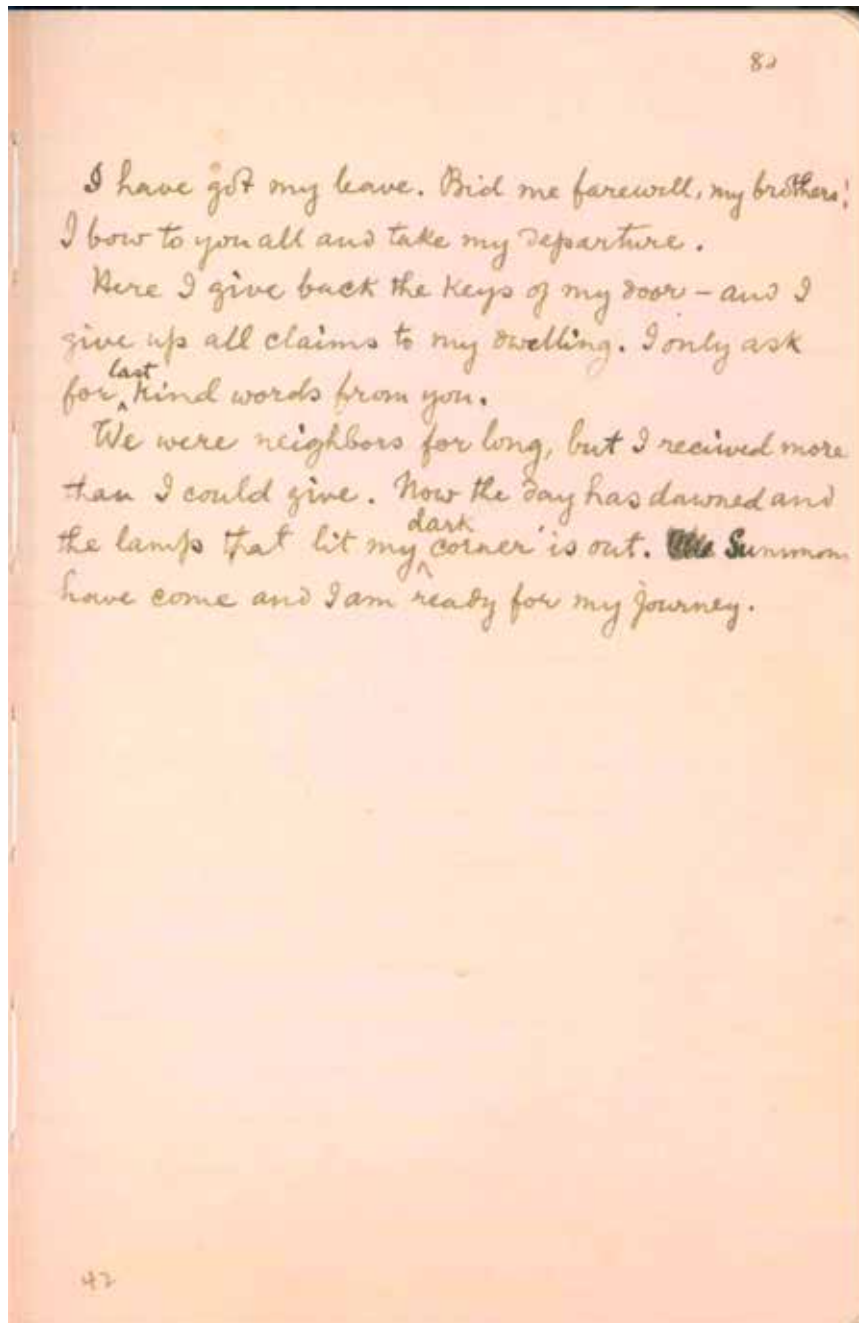 I have got my leave. Bid me farewell, my brothers!
I bow to you all and take my departure.
Here I give back the keys of my door – and I
give up all claims to my dwelling. I only ask
for last kind words from you.
We were neighbors for long, but I recived more
than I could give. Now the day has dawned and
the lamp that lit my dark corner is out. Summons
have come and I am ready for my journey.
42